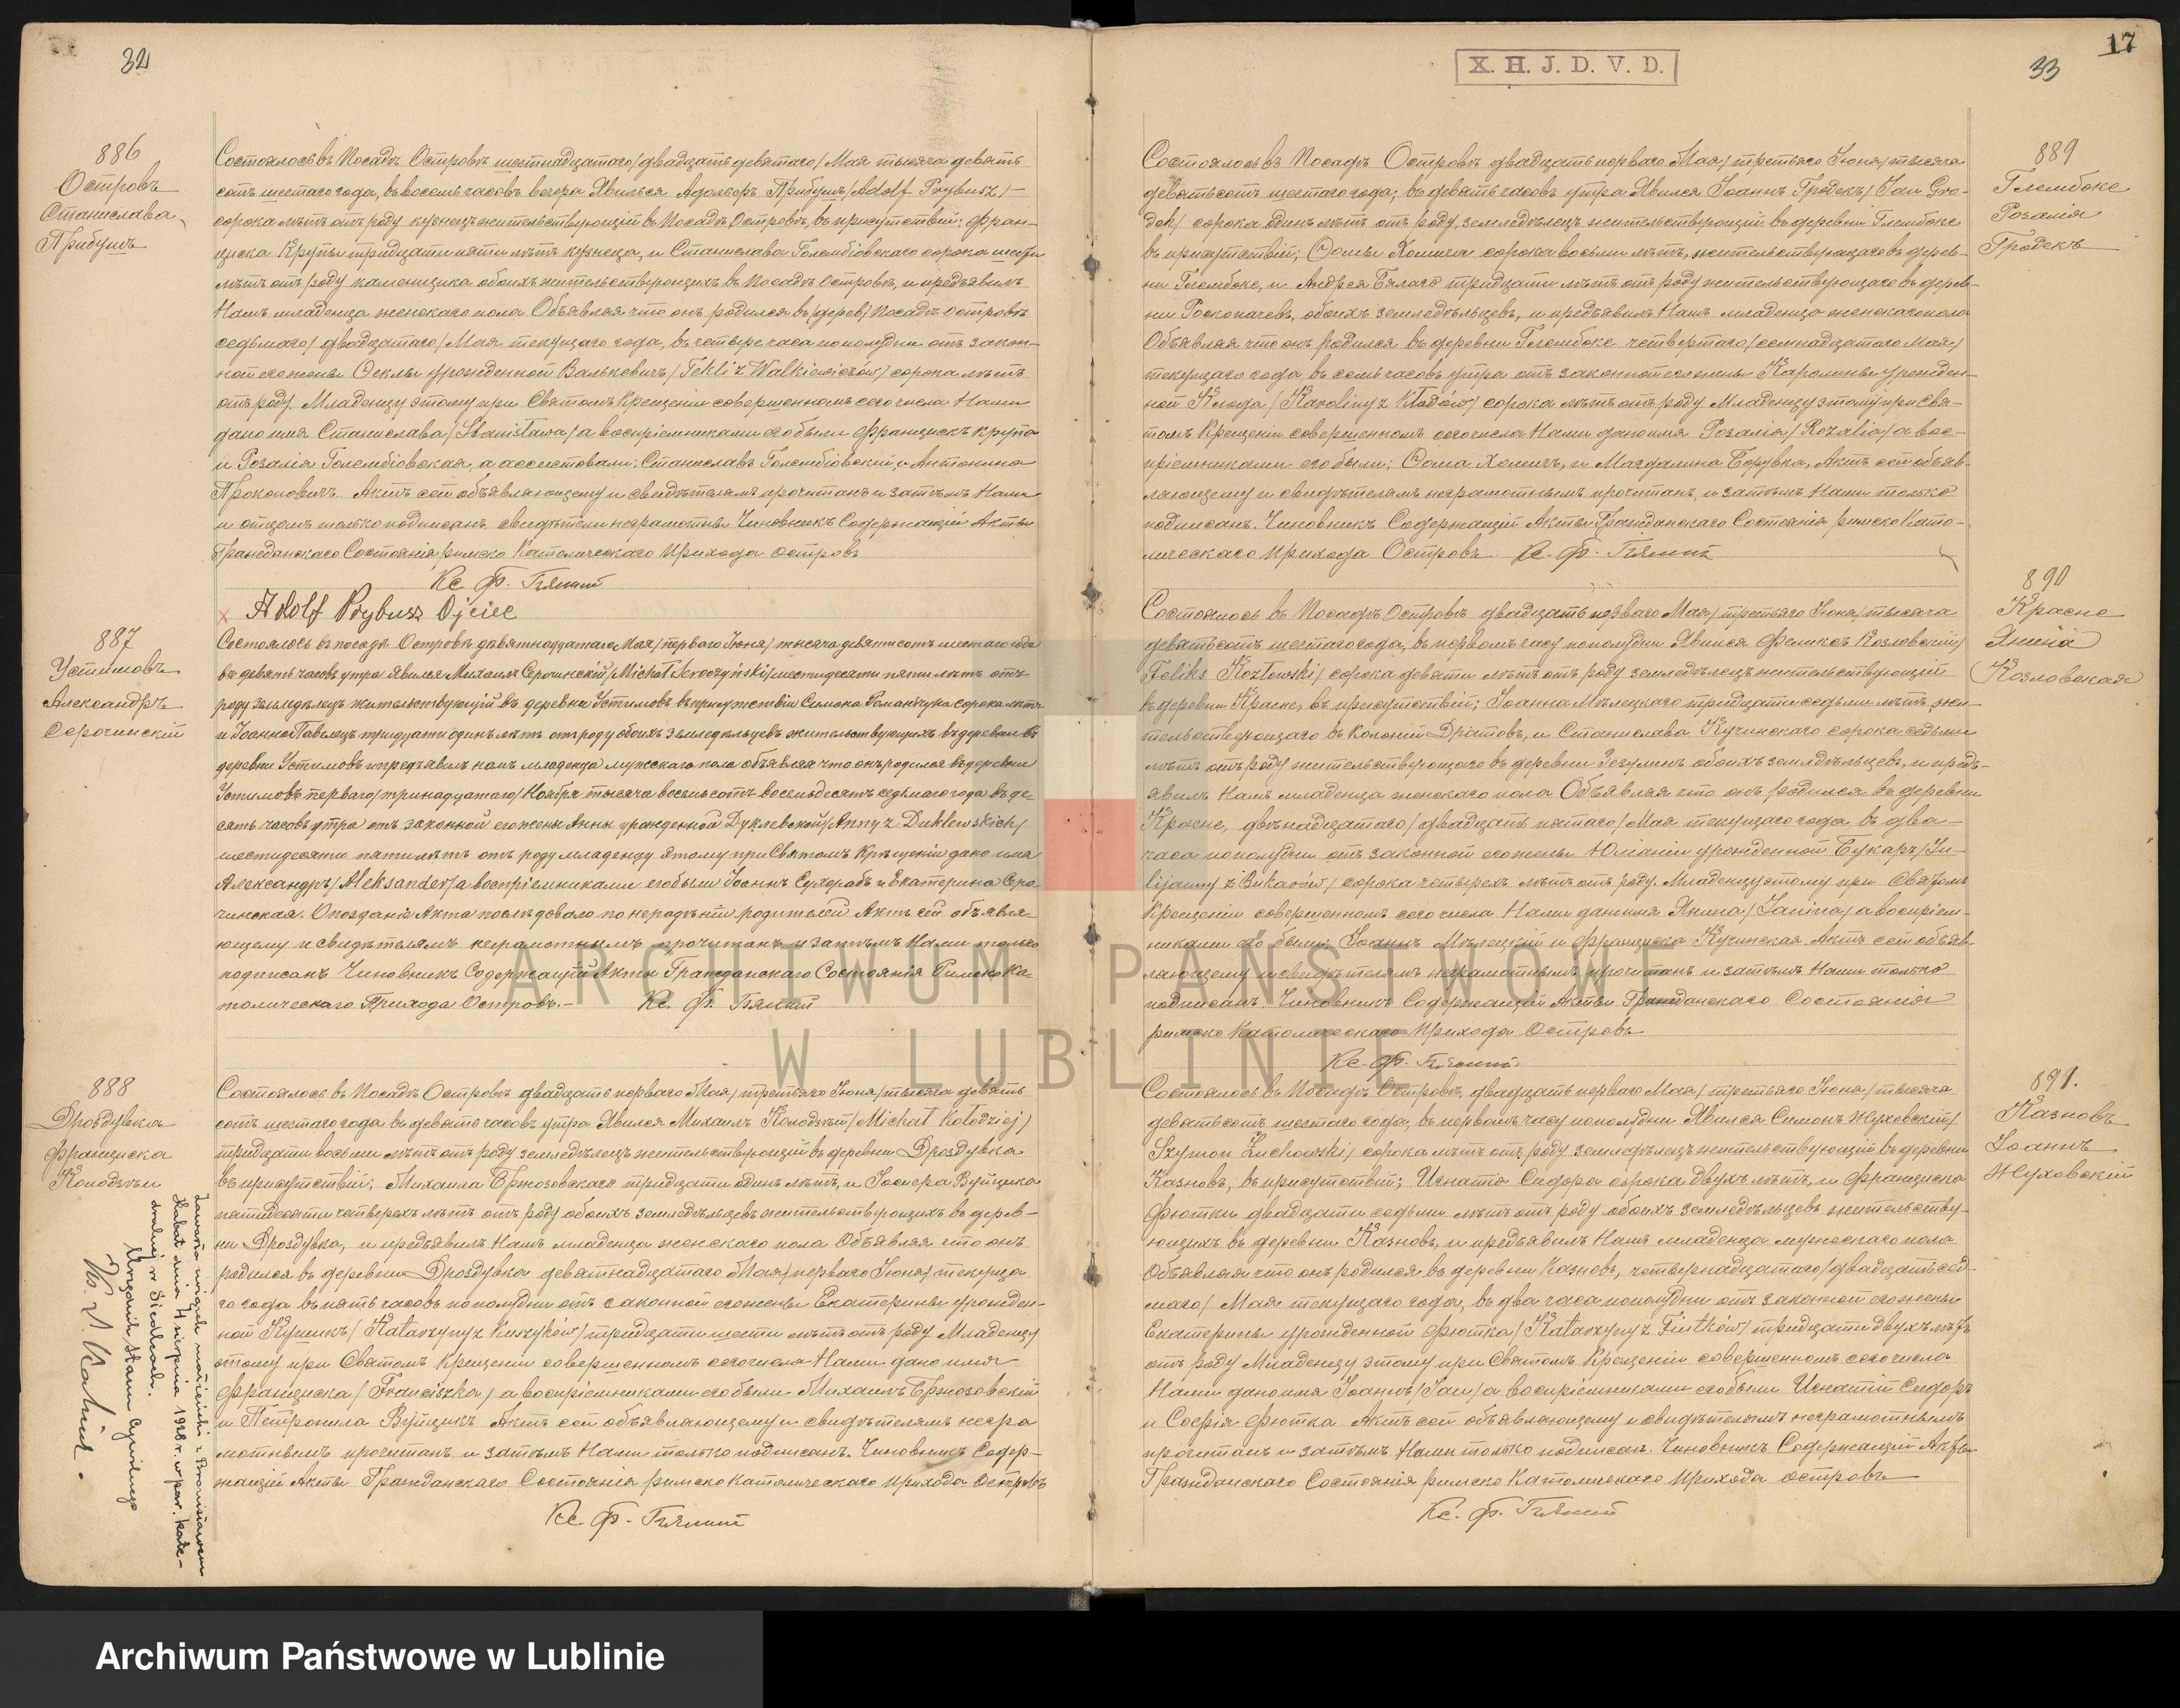 32
886
Островъ
Станислава
Прибушъ
Состоялось въ Посадѣ Островѣ шестнадцатаго /двадцать девятаго/ Мая тысяча девять
сотъ шестаго года, въ восемь часовъ вечера Явился Адольфъ Прибушъ /Adolf Prybusz/
сорока лѣтъ отъ роду кузнецъ жительствующій въ Посадѣ Островѣ, въ присутствіи: Фран-
циска Крупы тридцати пяти лѣтъ кузнеца, и Станислава Голембіовскаго сорока шести
лѣтъ отъ роду каменщика обоихъ жительствующихъ въ Посадѣ Островѣ, и предъявилъ
Намъ младенца женскаго пола Объявляя что онъ родился въ /дерев/ Посадѣ Островѣ
седьмаго /двадцатаго/ Мая текущаго года, въ четыре часа пополудни отъ закон-
ной его жены Феклы урожденной Валькевичъ /Tekli z Walkiewiczów/ сорока лѣтъ
отъ роду. Младенцу этому при Святомъ Крещеніи совершенномъ сего числа Нами
дано имя Станислава /Stanisława/ а воспріемниками его были Францискъ Крупа
и Розалія Голембіовская, а ассистовали: Станиславъ Голембіовскій и Антонина
Прокоповичъ. Актъ сей объявляющему и свидѣтелямъ прочитанъ и затѣмъ Нами
и отцемъ только подписанъ, свидѣтели неграмотны Чиновникъ Содержащій Акты
Гражданскаго Состоянія римско Католическаго Прихода Островъ
Кс. Ф.
Adolf Prybusz Ojciec
887
Устимовъ
Александръ
Серочинскій
Состоялось въ посадѣ Островѣ девятнадцатаго Мая /перваго Іюня/ тысяча девятисотъ шестаго года
въ девять часовъ утра явился Михаилъ Серочинскій /Michał Seroczyński/ шестидесяти пяти лѣтъ отъ
роду земледѣлецъ жительствующій въ деревни Устимовъ въ присутствіи Симона Романчука сорока лѣтъ
и Іоанна Павелецъ тридцати одинъ лѣтъ отъ роду обоихъ земледѣльцевъ жительствующихъ въ деревни въ
деревни Устимовъ и предъявилъ намъ младенца мужскаго пола объявляя что онъ родился въ деревни
Устимовъ перваго /тринадцатаго/ Ноября тысяча восемьсотъ восемьдесятъ седьмаго года въ де-
сять часовъ утра отъ законной его жены Анны урожденной Дуклевской /Anny z Duklewskich/
шестидесяти пяти лѣтъ отъ роду младенцу этому при Святомъ Крещеніи дано имя
Александръ /Aleksander/ а воспріемниками его были Іоаннъ Сухорабъ и Екатерина Серо-
чинская. Опозданіе Акта послѣдовало по нерадѣнію родителей Актъ сей объявля-
ющему и свидѣтелямъ неграмотнымъ прочитанъ и затѣмъ Нами только
подписанъ Чиновникъ Содержащій Акты Гражданскаго Состоянія Римско Ка-
толическаго Прихода Островъ.— Кс. Ф.
888
Дроздувка
Франциска
Колодзѣй
Состоялось въ Посадѣ Островѣ двадцать перваго Мая /третьяго Іюня/ тысяча девять
сотъ шестаго года въ девять часовъ утра Явился Михаилъ Колодзѣй /Michał Kołodziej/
тридцати восьми лѣтъ отъ роду земледѣлецъ жительствующій въ деревни Дроздувка
въ присутствіи; Михаила Бржозовскаго тридцати одинъ лѣтъ, и Іосифа Вуйцика
пятидесяти четверехъ лѣтъ отъ роду обоихъ земледѣльцевъ жительствующихъ въ дерев-
ни Дроздувка, и предъявилъ Намъ младенца женскаго пола Объявляя что онъ
родился въ деревни Дроздувка девятнадцатаго Мая /перваго Іюня/ текуща
го года въ пять часовъ пополудни отъ законной его жены Екатерины урожден-
ной Кушикъ /Katarzyny z Kuszyków/ тридцати шести лѣтъ отъ роду Младенцу
этому при Святомъ Крещеніи совершенномъ сего числа Нами дано имя
Франциска /Franciszka/ а воспріемниками его были Михаилъ Бржозовскій
и Петронела Вуйцикъ Актъ сей объявляющему и свидѣтелямъ негра
мотнымъ прочитанъ и затѣмъ Нами только подписанъ. Чиновникъ Содер-
жащій Акты Гражданскаго Состоянія римско Католическаго прихода Островъ
Кс. Ф.
Zawarła związek małżeński z
dnia 14 sierpnia 1928 r. w par. kate-
dralnej w Siedlcach.
Urzędnik Stanu Cywilnego
X. H. J. D. V. D.
17
33
889
Глембоке
Розалія
Гродекъ
Состоялось въ Посадѣ Островѣ двадцать перваго Мая /третьяго Іюня/ тысяча
девятьсотъ шестаго года; въ девять часовъ утра Явился Іоаннъ Гродекъ /Jan Gro-
dek/ сорока одинъ лѣтъ отъ роду, земледѣлецъ жительствующій въ деревни Глембоке
въ присутствіи; Фомы Хомича сорока восьми лѣтъ, жительствующаго въ дерев-
ни Глембоке, и Андрея Бялаго тридцати лѣтъ отъ роду жительствующаго въ дерев-
ни Роскопачевъ, обоихъ земледѣльцевъ, и предъявилъ Намъ младенца женскаго пола
Объявляя что онъ родился въ деревни Глембоке четвертаго /семнадцатаго Мая/
текущаго года въ семь часовъ утра отъ законной его жены Каролины урожден-
ной Клода /Karoliny z Kłodów/ сорока лѣтъ отъ роду. Младенцу этому при Свя-
томъ Крещеніи совершенномъ сего числа Нами дано имя Розалія /Rozalia/ а вос-
пріемниками его были; Фома Хомичъ, и Магдалина Борувка, Актъ сей объяв-
ляющему и свидѣтелямъ неграмотнымъ прочитанъ, и затѣмъ Нами только
подписанъ. Чиновникъ Содержащій Акты Гражданскаго Состоянія римско Като-
лическаго прихода Островъ Кс. Ф.
890
Красне
Янина
Козловская
Состоялось въ Посадѣ Островѣ двадцать перваго Мая /третьяго Іюня/ тысяча
девятьсотъ шестаго года, въ первомъ часу пополудни Явился Феликсъ Козловскій/
Feliks Kozłowski/ сорока девяти лѣтъ отъ роду земледѣлецъ жительствующій
въ деревни Красне, въ присутствіи; Іоанна Мѣлецкаго тридцати седьми лѣтъ, жи-
тельствующаго въ Колоніи Дратовъ, и Станислава Кучинскаго сорока седьми
лѣтъ отъ роду жительствующаго въ деревни Зезулинъ обоихъ земледѣльцевъ, и предъ-
явилъ Намъ младенца женскаго пола Объявляя что онъ родился въ деревни
Красне, двѣнадцатаго /двадцать пятаго/ Мая текущаго года въ два
часа пополудни отъ законной его жены Юліанны урожденной Букаръ /Ju-
lijanny z Bukarów/ сорока четырехъ лѣтъ отъ роду. Младенцу этому при Святомъ
Крещеніи совершенномъ сего числа Нами дано имя Янина /Janina/ а воспріем-
никами его были; Іоаннъ Мѣлецкій и Франциска Кучинская. Актъ сей объяв-
ляющему и свидѣтелямъ неграмотнымъ прочитанъ и затѣмъ Нами только
подписанъ. Чиновникъ Содержащій Акты Гражданскаго Состоянія
римско Католическаго прихода Островъ
Кс. Ф.
891.
Казновъ
Іоаннъ
Жуховскій
Состоялось въ Посадѣ Островѣ, двадцать перваго Мая /третьяго Іюня/ тысяча
девятьсотъ шестаго года, въ первомъ часу пополудни Явился Симонъ Жуховскій/
Szymon Żuchowski/ сорока лѣтъ отъ роду земледѣлецъ жительствующій въ деревни
Казновъ, въ присутствіи; Игнатія Сидора сорока двухъ лѣтъ, и Франциска
Фютки двадцати седьми лѣтъ отъ роду обоихъ земледѣльцевъ жительству-
ющихъ въ деревни Казновъ, и предъявилъ Намъ младенца мужескаго пола
Объявляя что онъ родился въ деревни Казновъ, четырнадцатаго /двадцать седь-
маго/ Мая текущаго года, въ два часа пополудни отъ законной его жены
Екатерины урожденной Фютка /Katarzyny z Fiutków/ тридцати двухъ лѣтъ
отъ роду Младенцу этому при Святомъ Крещеніи совершенномъ сего числа
Нами дано имя Іоаннъ /Jan/ а воспріемниками его были Игнатій Сидоръ
и Софія Фютка Актъ сей объявляющему и свидѣтелямъ неграмотнымъ
прочитанъ и затѣмъ Нами только подписанъ. Чиновникъ Содержащій Акты
Гражданскаго Состоянія римско Католическаго прихода Островъ
Кс. Ф.
ARCHIWUM PAŃSTWOWE
W LUBLINIE
Archiwum Państwowe w Lublinie